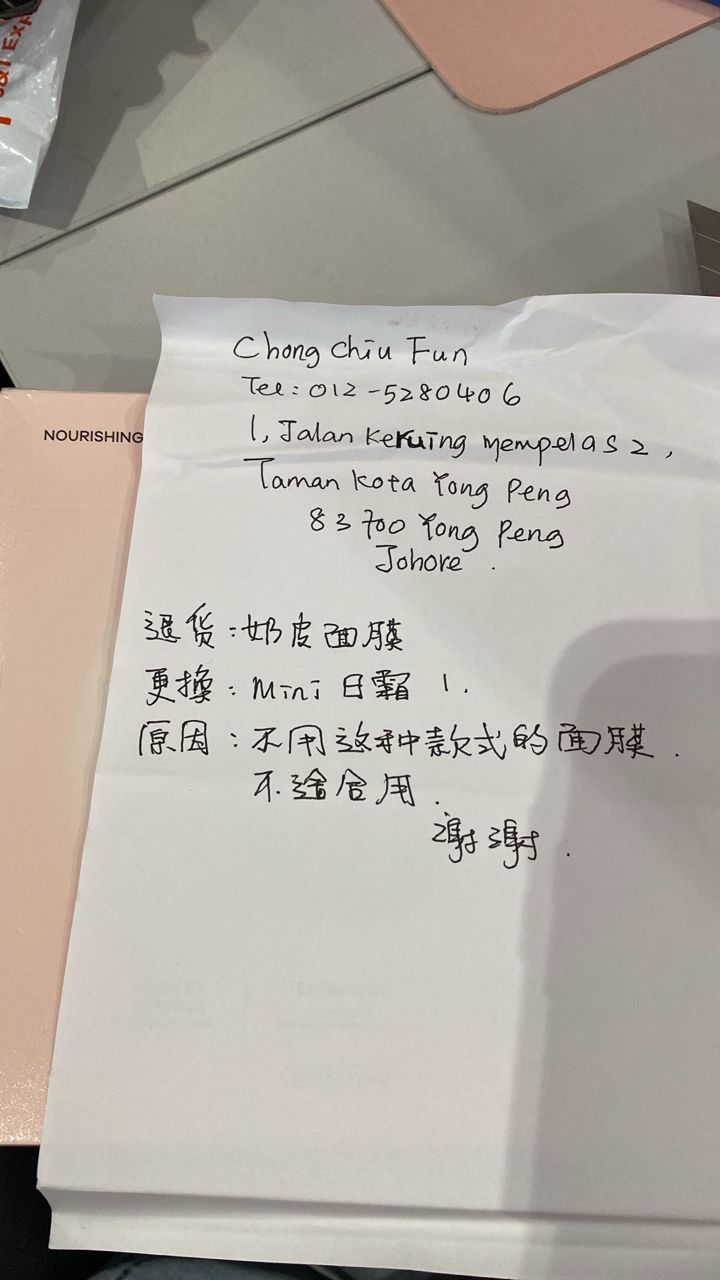 J&T EXP
NOURISHING
Chong Chiu Fun
Tel: 012-5280406
1, Jalan Keruing Mempelas 2,
Taman Kota Yong Peng
83700 Yong Peng
Johore.
退货:奶皮面膜
更換:Mini日霜 1.
原因:不用这种款式的面膜.
不适合用.
谢谢.